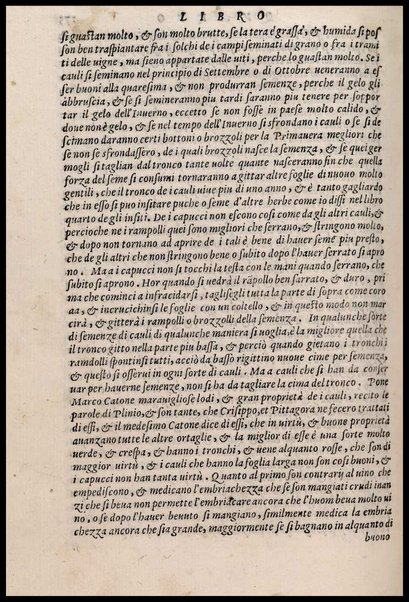 LIBRO
si guastan molto, & son molto brutte, se la tera è grassa, & humida si pos
son ben traspiantare fra i solchi de i campi seminati di grano o fra i trami
ti delle uigne, ma sieno appartate dalle uiti, perche lo guastan molto. Se i
cauli si seminano nel principio di Settembre o di Ottobre ueneranno a es
ser buoni alla quaresima, & non produrran semenze, perche il gelo gli
abbruscia, & se si semineranno piu tardi saranno piu tenere per sop̱por
tar il gelo dell'Inuerno, eccetto se non fosse in paese molto calido &
doue non è gelo, & se nel tempo dell'Inuerno si sfrondano i cauli o se si de
scimano daranno certi bottoni o brozzoli per la Primauera megliori che
se non se sfrondassero, de i quali brozzoli nasce la semenza, & se quei ger
mogli si taglian dal tronco tante uolte quante nasceranno fin che quella
forza del seme si consumi tornaranno a gittar altre foglie di nuouo molto
gentili, che il tronco de i cauli uiue piu di uno anno, & è tanto gagliardo
che in esso si puo insitare puche o seme d'altre herbe come io dissi nel libro
quarto de gli insiti. De i capucci non escono cosi come da gli altri cauli, &
percioche ne i rampolli quei sono migliori che serrano, & stringono molto,
& dopo non tornano ad aprire de i tali è bene di hauer semẽ piu presto,
che de gli altri che non stringono bene o subito dopo l'hauer serrato si apro
no. Ma a i capucci non si tocchi la testa con le mani quando serrano, che
subito si aprono. Hor quando si uedrà il rãpollo ben serrato, & duro, pri
ma che cominci a infracidarsi, taglisegli tutta la parte di sopra come coro
aa, & incrucichinsi le foglie con un coltello, & in questo modo non mar
cirà, & gitterà i rampolli o brozzolli della semenza. In qualunche sorte
di semenze di cauli di qualunche maniera si uoglia, è la migliore quella che
il tronco gitto nella parte piu bassa, & perciò quando gietano i tronchi
ramdolli spontinsi tutti, acciò da basso rigittino nuoue cime per semenza,
& questo si osserui in ogni sorte di cauli. Ma a cauli che si han da conser
uar per hauerne semenze, non si ha da tagliare la cima del tronco. Pone
Marco Catone marauigliose lodi, & gran proprietà de i cauli, recito le
parole di Plinio, & son tante, che Crisippo, et Pittagora ne fecero trattati
di essi, & il medesimo Catone dice di essi, che in uirtù, & buone proprietà
auanzano tutte le altre ortaglie, & la miglior di esse è una sorte molto
uerde, & crespa, & hanno i tronchi, & uene alquanto rosse, che son di
maggior uirtù, & i cauli che hanno la foglia larga non son cosi buoni, &
i capucci non han tanta uirtù. Quanto al primo son contrary al uino che
empediscono, & medicano l'embriachezza che se son mangiati crudi inan
zi che si beua non permette l'embriacare ancora che l'huom beua molto ui
no, o se dopo l'hauer beuuto si mangiano, similmente medica la embria
chezza ancora che sia grande, maggiormente se si bagnano in alquanto di
buono